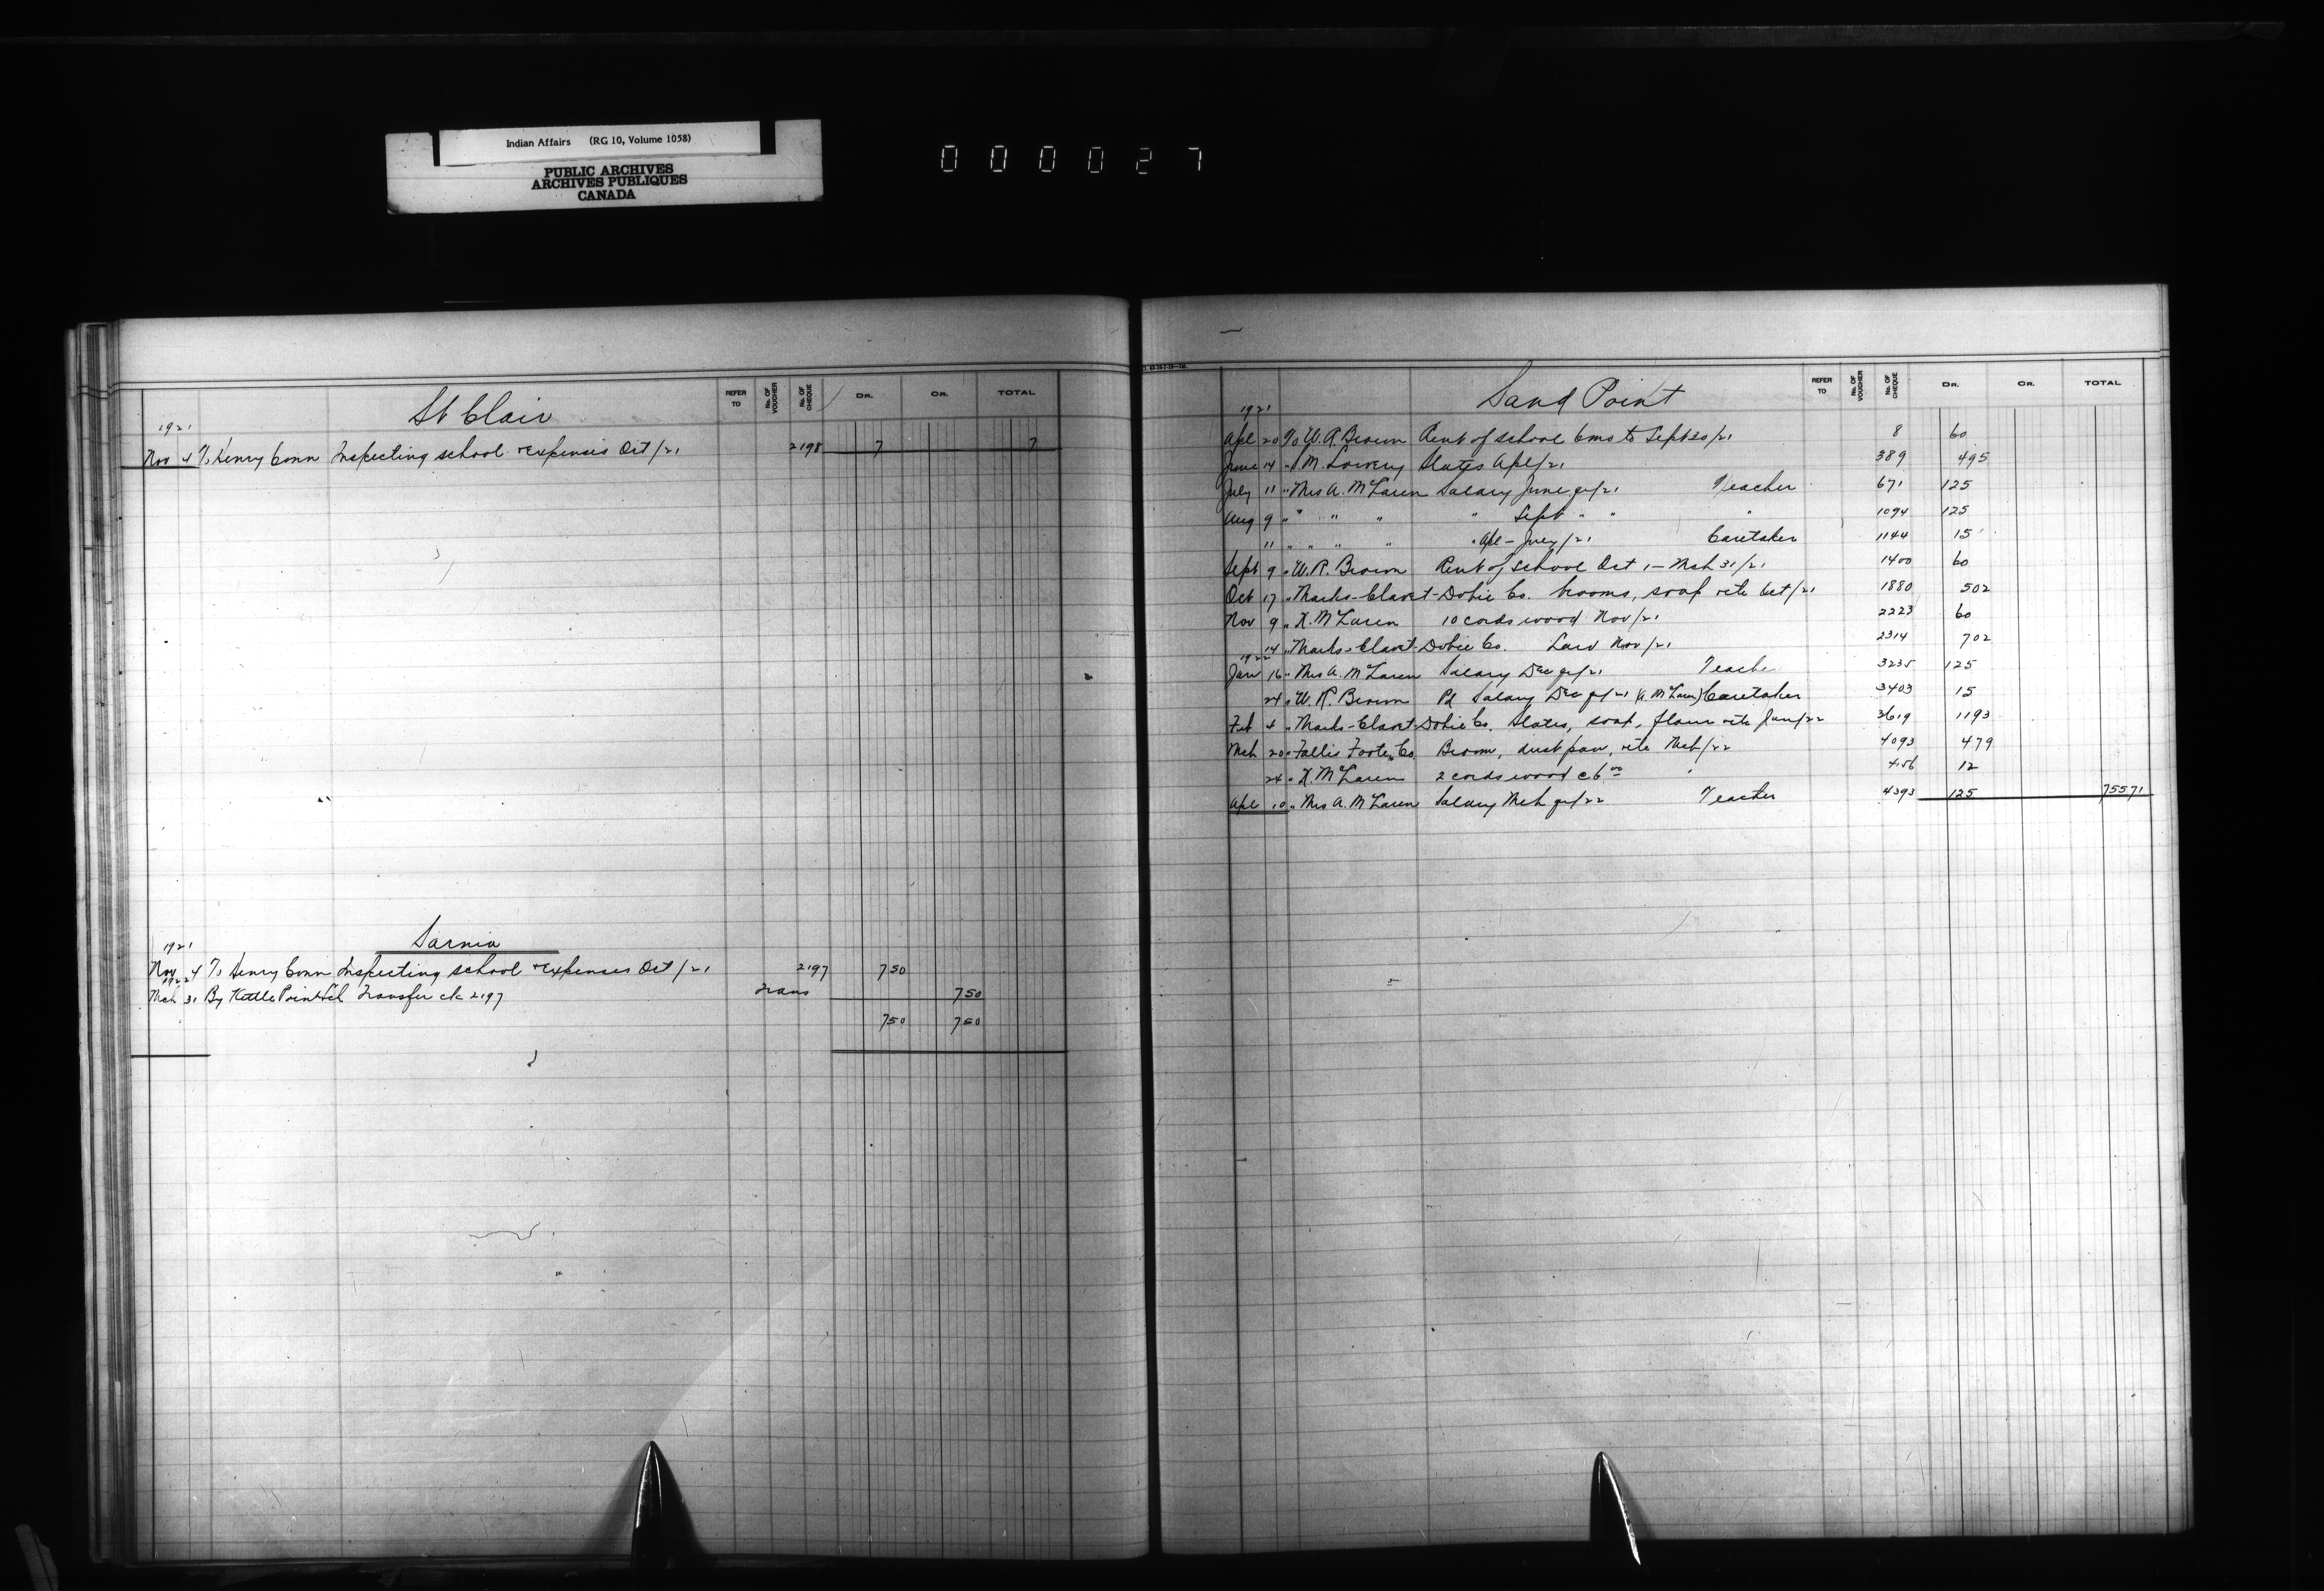 Indian Affairs (RG 10, Volume 1058)
PUBLIC ARCHIVES
ARCHIVES PUBLIQUES
CANADA
000027
St Clair
REFER TO No. OF VOUCHER No. OF CHEQUE DR. CR. TOTAL
1921
Nov 4 To Henry Conn Inspecting school + expenses Oct/21 2198 7 7
Sarnia
1921
Nov 4 To Henry Conn Inspecting school + expenses Oct/21 2197 750
1922
Mch 31 By Kettle Point Sch Transfer ck 2197 Trans 750
750 750
Sand Point
REFER TO No. OF VOUCHER No. OF CHEQUE DR. CR. TOTAL
1921
Apl 20 To W. R. Brown Rent of school 6 mo to Sept 30/21 8 60
June 14 " Lowery Slates Apl/21 389 495
July 11 " Mrs A. McLaren Salary June qr/21 Teacher 671 125
Aug 9 " " " " " Sept " " " 1094 125
11 " " " " " Apl - July/21 Caretaker 1144 15
Sept 9 " W. R. Brown Rent of School Oct 1 - Mch 31/21 1400 60
Oct 17 " Marks-Clavet-Dobie Co. brooms, soap etc Oct/21 1880 502
Nov 9 " McLaren 10 cords wood Nov/21 2223 60
14 " Marks-Clavet-Dobie Co. Nov/21 2314 702
1922
Jan 16 " Mrs A. McLaren Salary Dec qr/21 Teacher 3235 125
24 " W. R. Brown Pd Salary Dec qr/21 (A. McLaren) Caretaker 3403 15
Feb 4 " Marks-Clavet-Dobie Co. Slates, soap, etc Jan/22 3619 1193
Mch 20 " Co Broom, dust pan, etc Mch/22 4093 479
24 " McLaren 2 cords wood @ 6 00 " 12
Apl 10 " Mrs A. McLaren Salary Mch qr/22 Teacher 4393 125 75571